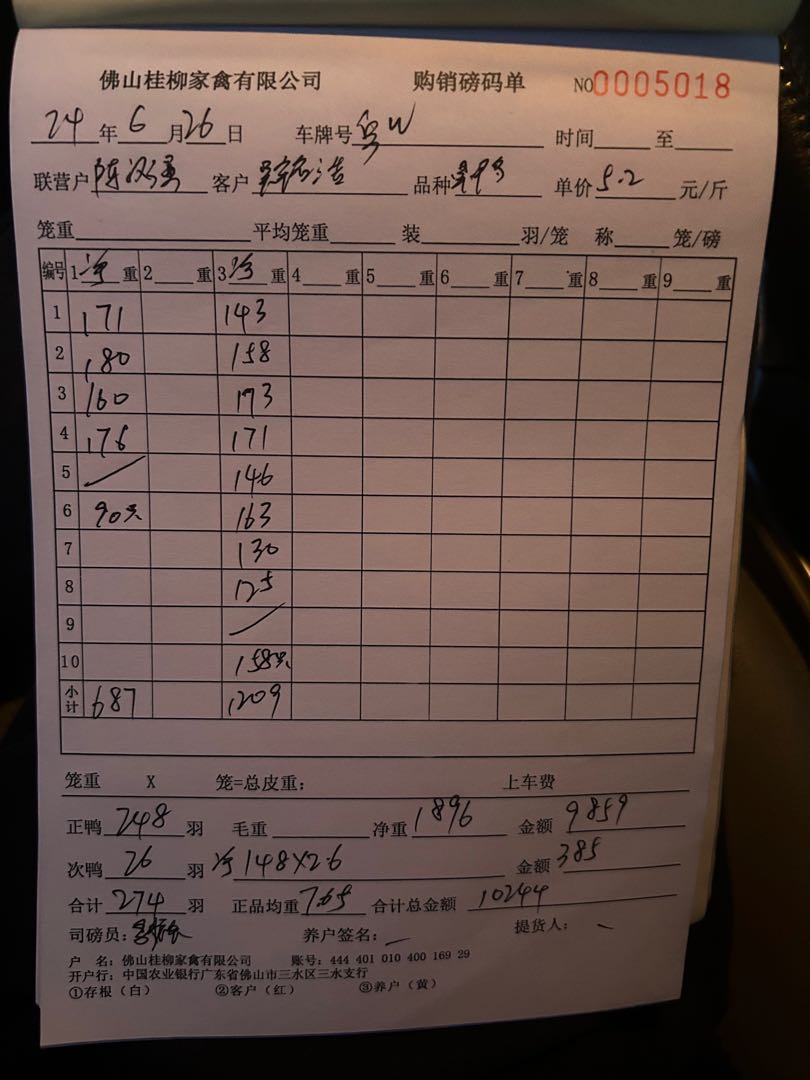 佛山桂柳家禽有限公司 购销磅码单 NO0005018
24年6月26日 车牌号粤W 时间 至
联营户陈 客户 浩 品种 单价5.2元/斤
笼重 平均笼重 装 羽/笼 称 笼/磅
编号 1净重 2 重 3净重 4 重 5 重 6 重 7 重 8 重 9 重
1 171 143
2 180 158
3 160 173
4 176 171
5 146
6 90只 163
7 130
8 125
9
10 158只
小计 687 1209
笼重 X 笼=总皮重： 上车费
正鸭248羽 毛重 净重1896 金额9859
次鸭26羽 净148X2.6 金额385
合计274羽 正品均重7.65 合计总金额10244
司磅员： 养户签名： 提货人：
户 名：佛山桂柳家禽有限公司 账号：444 401 010 400 169 29
开户行：中国农业银行广东省佛山市三水区三水支行
①存根（白） ②客户（红） ③养户（黄）